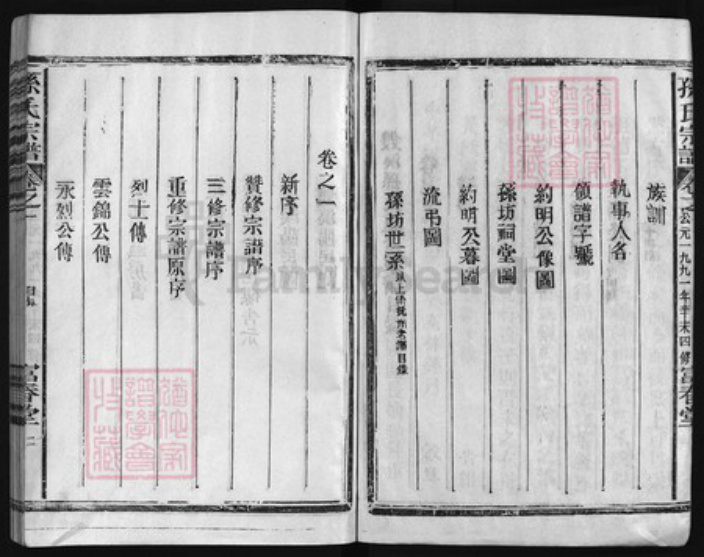 孫氏宗譜 卷之 公元一九九一年辛未四修 富春堂
族訓
執事人名
領譜字號
約明公像圖
孫坊祠堂圖
約明公墓圖
流弔圖
孫坊世系 以上係抚州老譜目錄
卷之一
新序
贊修宗譜序
三修宗譜序
重修宗譜原序
烈士傳
雲錦公傳
永烈公傳
孫氏宗譜 卷之一 目錄 富春堂
FamilySearch